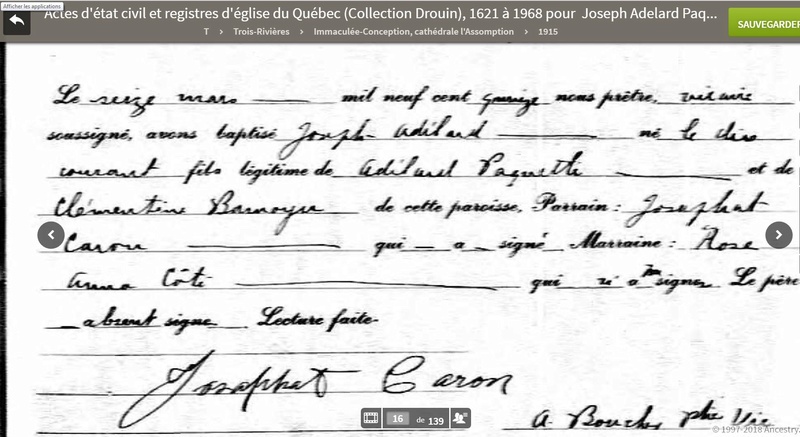 Afficher les applications
Actes d'état civil et registres d'église du Québec (Collection Drouin), 1621 à 1968 pour Joseph Adelard Paq...
SAUVEGARDER
T > Trois-Rivières > Immaculée-Conception, cathédrale l'Assomption > 1915
Le seize mars mil neuf cent quinze nous prêtre, vicaire
soussigné, avons baptisé Joseph Adélard né le dix
courant fils légitime de Adélard Paquette et de
Clémentine de cette paroisse, Parrain: Josaphat
Caron qui a signé Marraine: Rose
Anna Côté qui n'a pu signer Le père
absent signe Lecture faite
Josaphat Caron
16 de 139
A. Boucher ptre Vic
© 1997-2018 Ancestry.